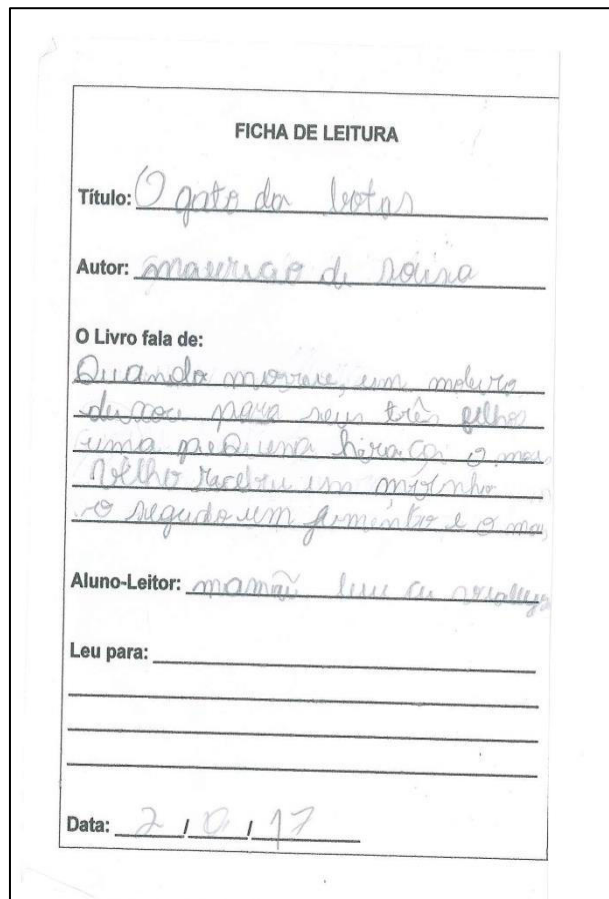 FICHA DE LEITURA
Título: O gato da botas
Autor: mauricao de sousa
O Livro fala de:
Quando morreu, um moleiro
deixou para seus três filhos
uma pequena heraça o mais
velho recebeu um moinho
o segundo um jumento e o ma
Aluno-Leitor: mamãe leu
Leu para:
Data: 2 / 0 / 17